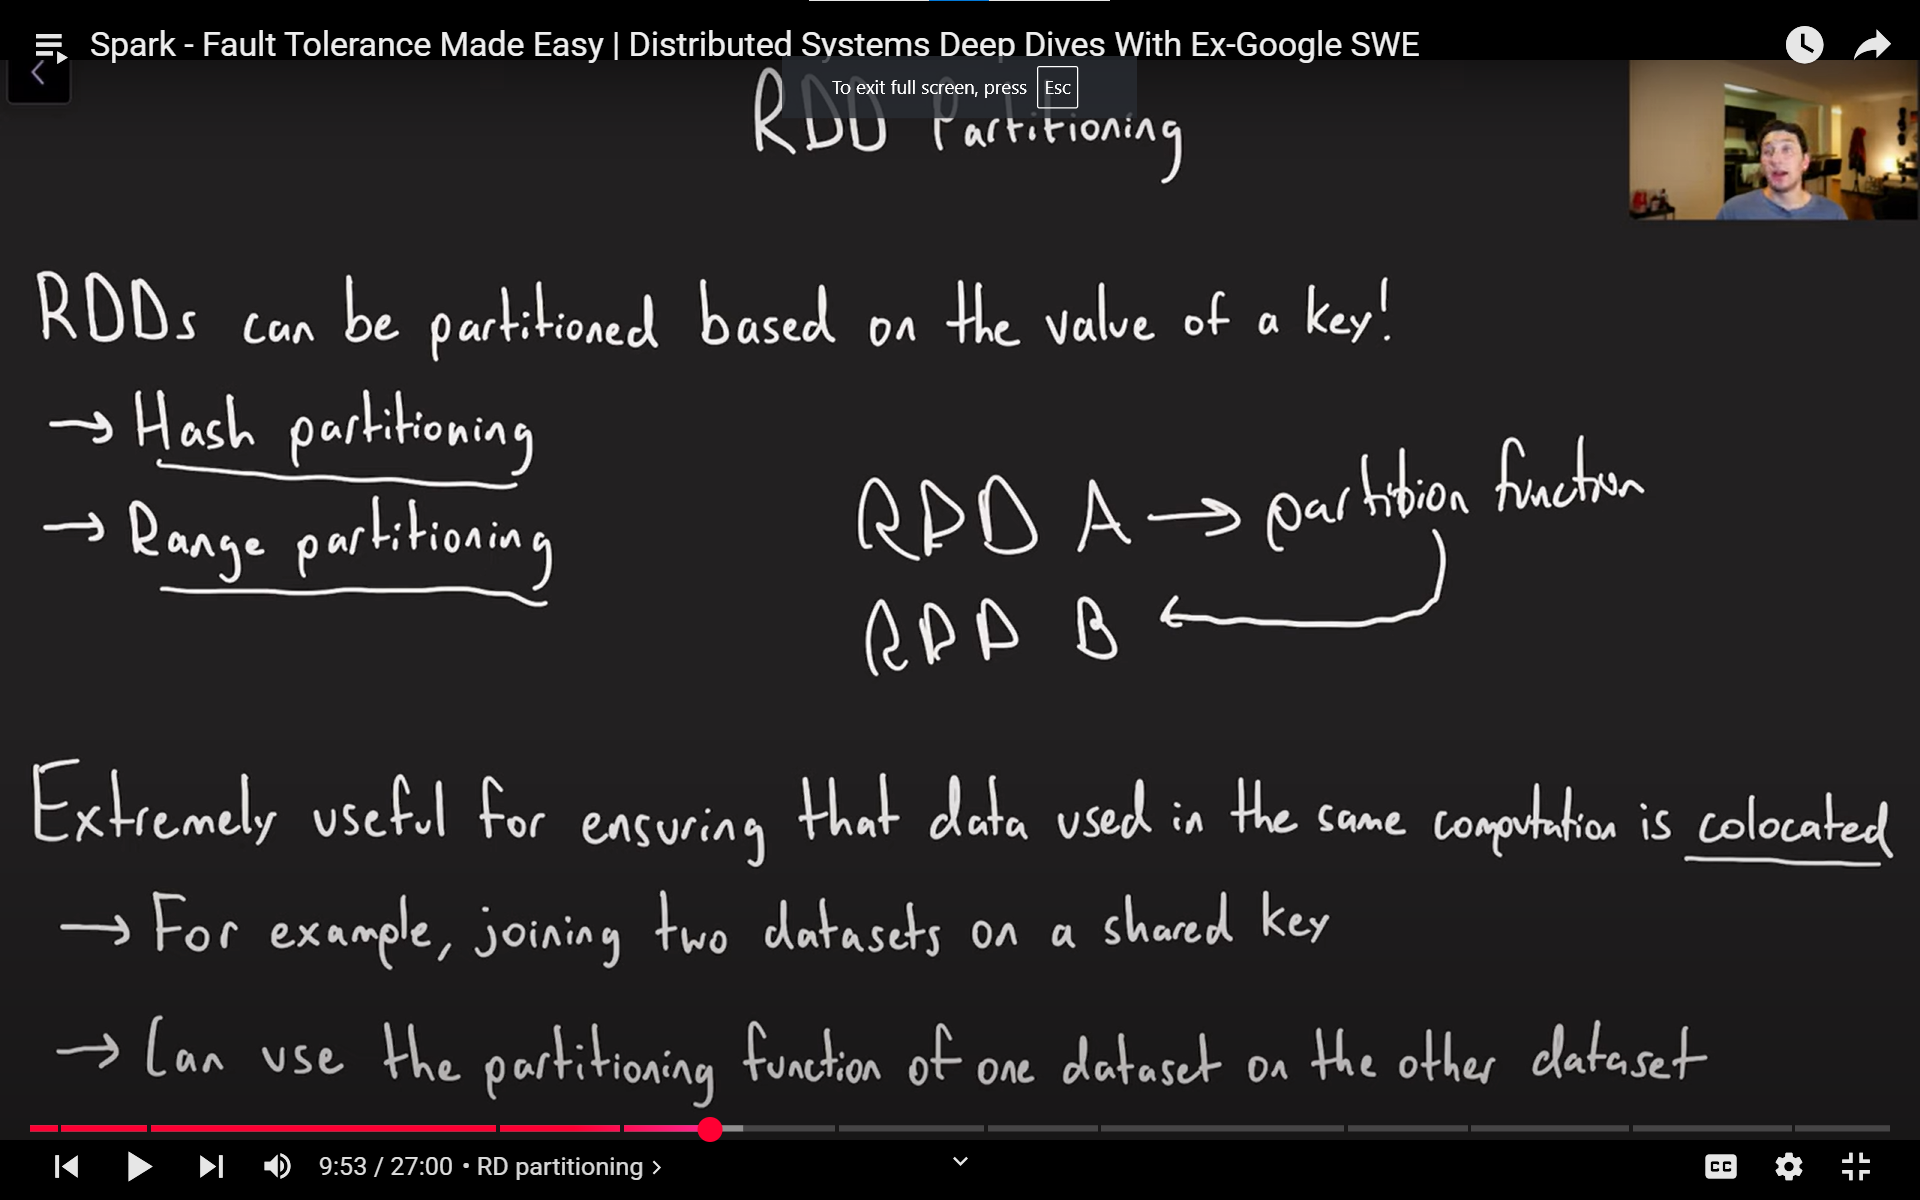 Spark - Fault Tolerance Made Easy | Distributed Systems Deep Dives With Ex-Google SWE
To exit full screen, press Esc
RDD Partitioning
RDDs can be partitioned based on the value of a key!
→ Hash partitioning
→ Range partitioning
RDD A → partition function
RDD B ←
Extremely useful for ensuring that data used in the same computation is colocated
→ For example, joining two datasets on a shared key
→ Can use the partitioning function of one dataset on the other dataset
9:53 / 27:00 • RD partitioning >
CC